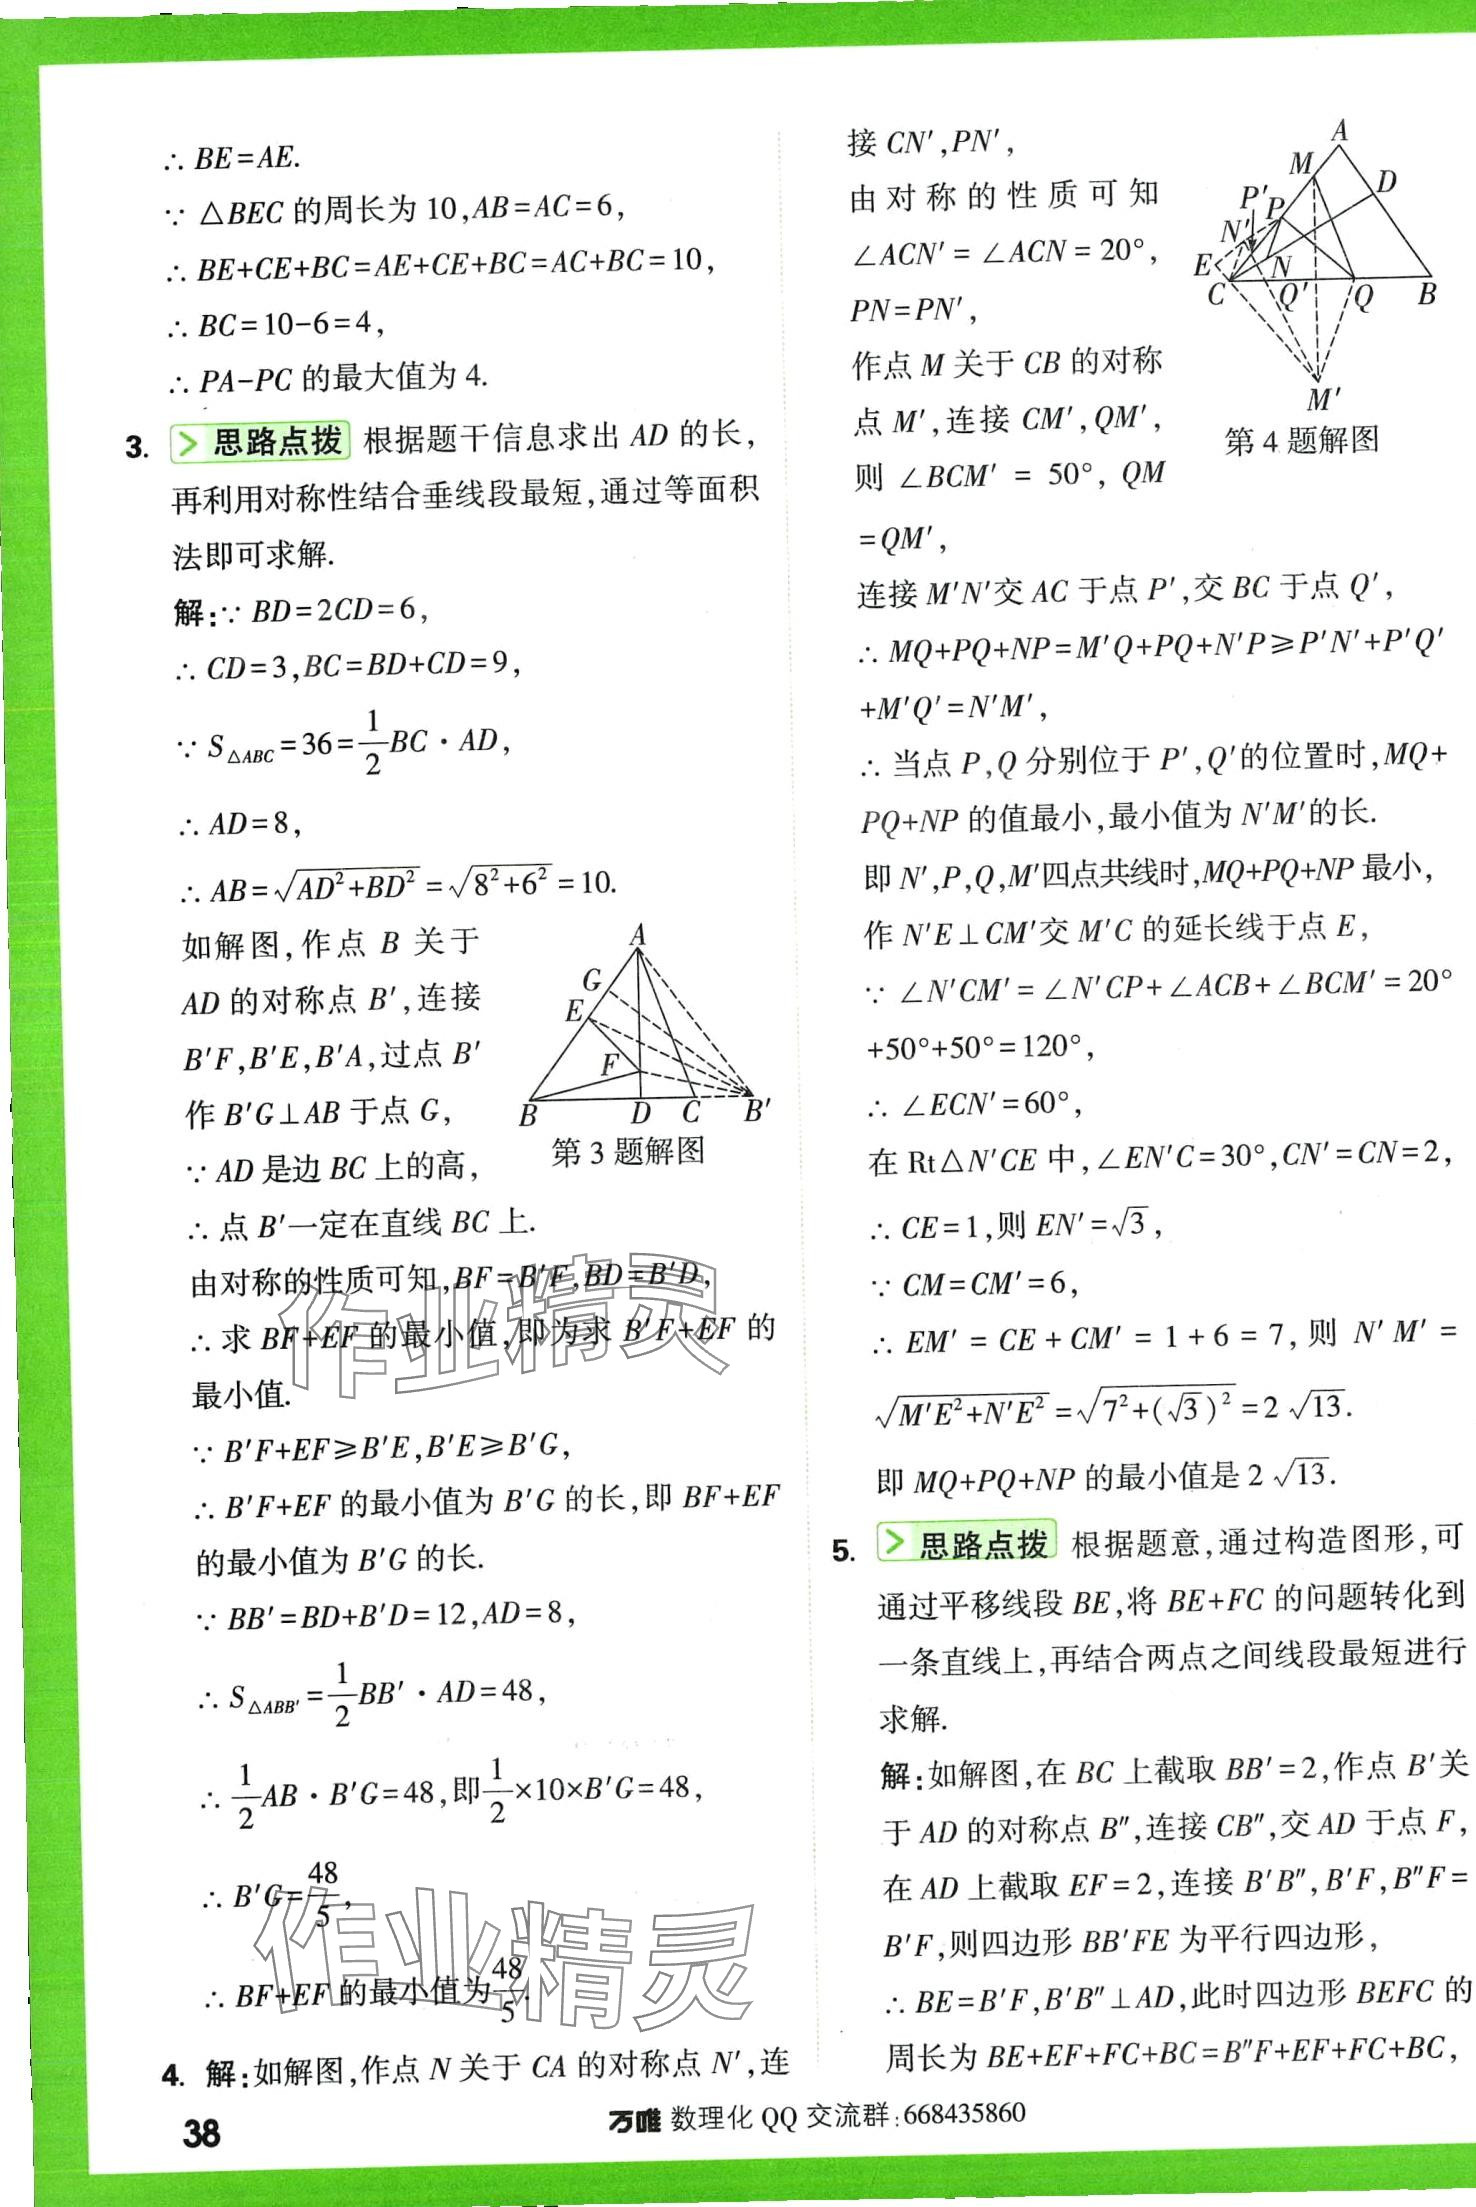 ∴ BE=AE.
∵ △BEC 的周长为 10,AB=AC=6,
∴ BE+CE+BC=AE+CE+BC=AC+BC=10,
∴ BC=10-6=4,
∴ PA-PC 的最大值为 4.
3. 思路点拨 根据题干信息求出 AD 的长,
再利用对称性结合垂线段最短,通过等面积
法即可求解.
解:∵ BD=2CD=6,
∴ CD=3,BC=BD+CD=9,
∵ S△ABC=36=1/2BC·AD,
∴ AD=8,
∴ AB=√(AD²+BD²)=√(8²+6²)=10.
如解图,作点 B 关于
AD 的对称点 B′,连接
B′F,B′E,B′A,过点 B′
作 B′G⊥AB 于点 G,
∵ AD 是边 BC 上的高,
∴ 点 B′一定在直线 BC 上.
由对称的性质可知,BF=B′F,BD=B′D,
∴ 求 BF+EF 的最小值,即为求 B′F+EF 的
最小值.
∵ B′F+EF≥B′E,B′E≥B′G,
∴ B′F+EF 的最小值为 B′G 的长,即 BF+EF
的最小值为 B′G 的长.
∵ BB′=BD+B′D=12,AD=8,
∴ S△ABB′=1/2BB′·AD=48,
∴ 1/2AB·B′G=48,即1/2×10×B′G=48,
∴ B′G=48/5,
∴ BF+EF 的最小值为48/5.
4. 解:如解图,作点 N 关于 CA 的对称点 N′,连
A
G
E
F
B
D
C
B′
第 3 题解图
作业精灵
作业精灵
接 CN′,PN′,
由对称的性质可知
∠ACN′=∠ACN=20°,
PN=PN′,
作点 M 关于 CB 的对称
点 M′,连接 CM′,QM′,
则 ∠BCM′ = 50°, QM
=QM′,
连接 M′N′交 AC 于点 P′,交 BC 于点 Q′,
∴ MQ+PQ+NP=M′Q+PQ+N′P≥P′N′+P′Q′
+M′Q′=N′M′,
∴ 当点 P,Q 分别位于 P′,Q′的位置时,MQ+
PQ+NP 的值最小,最小值为 N′M′的长.
即 N′,P,Q,M′四点共线时,MQ+PQ+NP 最小,
作 N′E⊥CM′交 M′C 的延长线于点 E,
∵ ∠N′CM′=∠N′CP+∠ACB+∠BCM′=20°
+50°+50°=120°,
∴ ∠ECN′=60°,
在 Rt△N′CE 中,∠EN′C=30°,CN′=CN=2,
∴ CE=1,则 EN′=√3,
∵ CM=CM′=6,
∴ EM′=CE+CM′=1+6=7,则 N′M′=
√(M′E²+N′E²)=√(7²+(√3)²)=2√13.
即 MQ+PQ+NP 的最小值是 2√13.
A
M
D
P′
P
N′
E
N
C
Q′
Q
B
M′
第 4 题解图
5. 思路点拨 根据题意,通过构造图形,可
通过平移线段 BE,将 BE+FC 的问题转化到
一条直线上,再结合两点之间线段最短进行
求解.
解:如解图,在 BC 上截取 BB′=2,作点 B′关
于 AD 的对称点 B″,连接 CB″,交 AD 于点 F,
在 AD 上截取 EF=2,连接 B′B″,B′F,B″F=
B′F,则四边形 BB′FE 为平行四边形,
∴ BE=B′F,B′B″⊥AD,此时四边形 BEFC 的
周长为 BE+EF+FC+BC=B″F+EF+FC+BC,
38
万唯 数理化 QQ 交流群:668435860